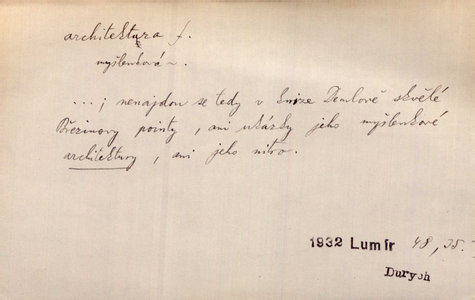 architektura f.
myšlenková ~.
...; nenajdou se tedy v knize Demlově skvělé
Březinovy pointy, ani ukázky jeho myšlenkové
architektury, ani jeho nitro.
1932 Lumír 48, 35.
Durych